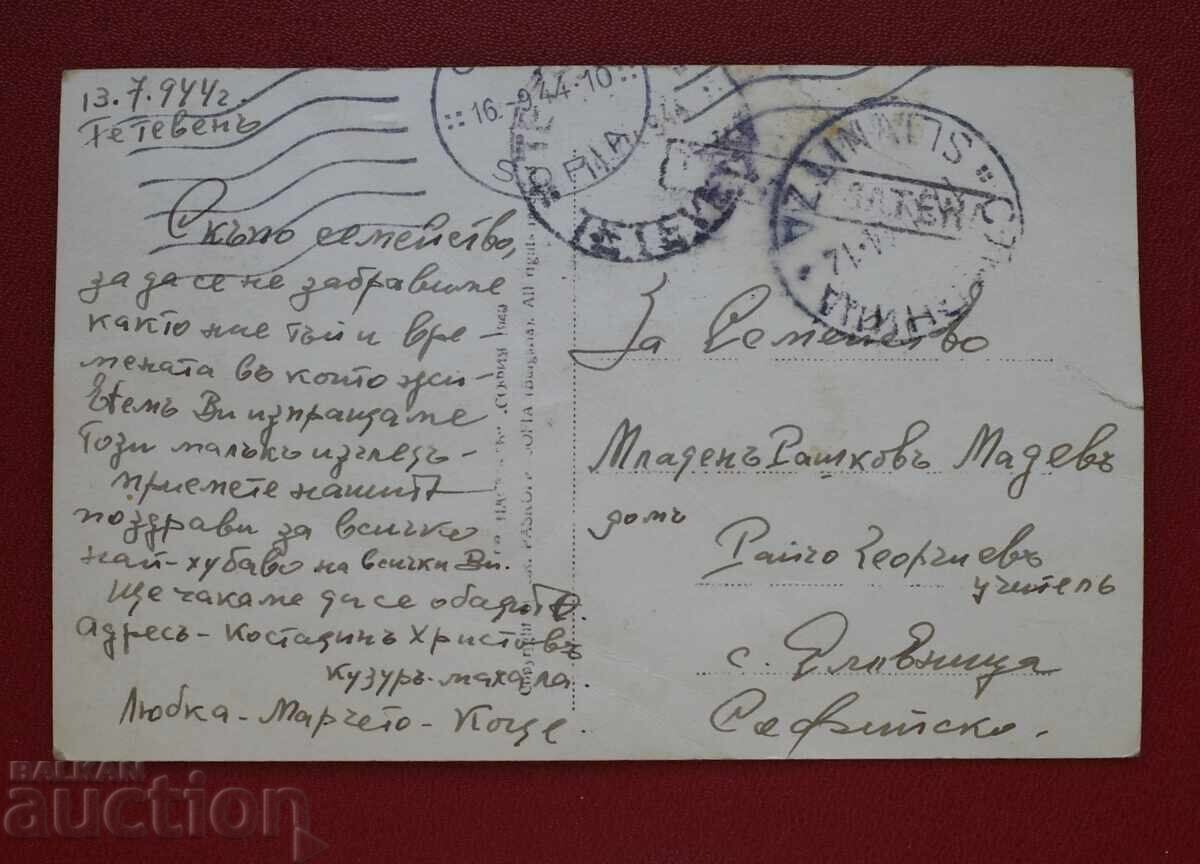 13.7.944г.
Тетевенъ
16.-9.44-10
SOFIA
TETEVEN
SLIVNITZA
Скъпо семейство,
за да се не забравиме
както ние тъй и вре-
мената въ които жи-
вѣемъ Ви изпращаме
този малъкъ изгледъ-
приемете нашитѣ
поздрави за всичко
най-хубаво на всички Ви.
Ще чакаме да се обадитѣ.
Адресъ - Костадинъ Христовъ
кузуръ-махала.
Любка-Марчето-Коце
За Семейство
Младенъ Рашковъ Мадевъ
домъ
Райчо Георгиевъ
учитель
с. Сливница
Софийско.
PASKOFF SOFIA (Bulgaria). All rights
BALKAN
auction